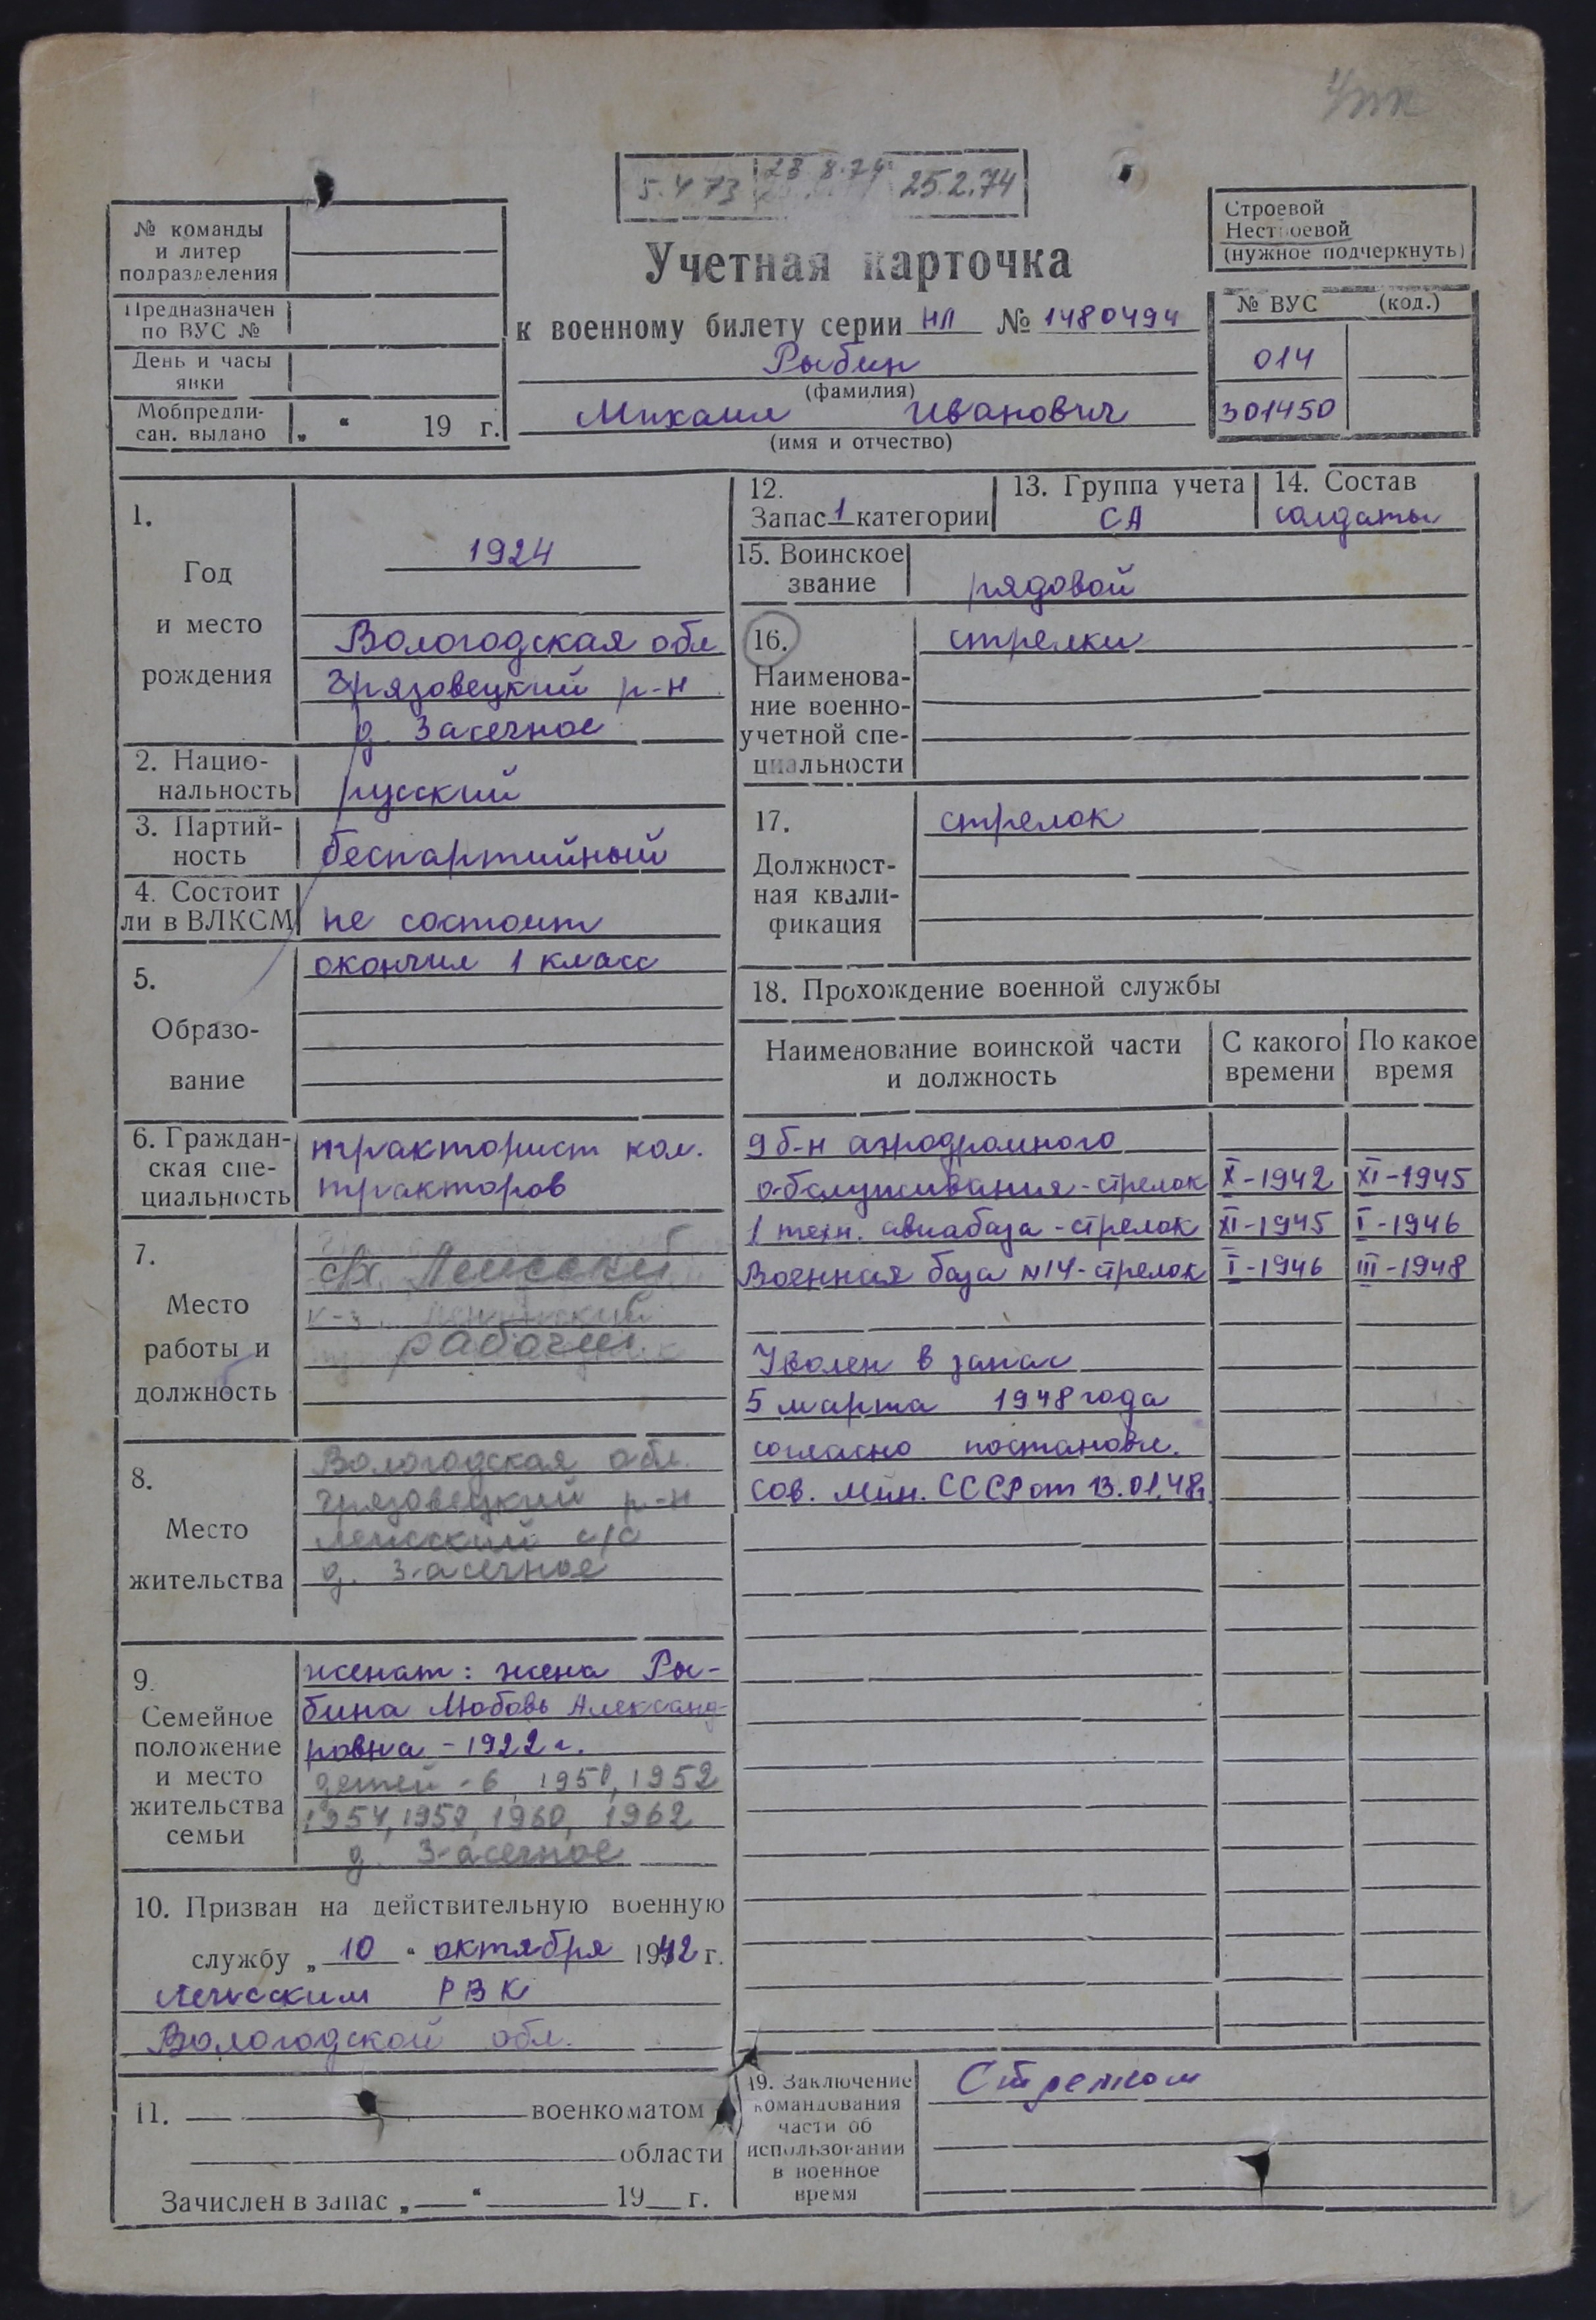 5.4.73 23.8.74 25.2.74
№ команды
и литер
подразделения
Предназначен
по ВУС №
День и часы
явки
Мобпредпи-
сан. выдано „ “ 19 г.
Учетная карточка
к военному билету серии НЛ № 1480494
Рыбин
(фамилия)
Михаил Иванович
(имя и отчество)
Строевой
Нестроевой
(нужное подчеркнуть)
№ ВУС (код.)
014
301450
1.
Год
и место
рождения
1924
Вологодская обл
Грязовецкий р-н
д. Засечное
2. Нацио-
нальность
русский
3. Партий-
ность
беспартийный
4. Состоит
ли в ВЛКСМ
не состоит
5.
Образо-
вание
окончил 1 класс
6. Граждан-
ская спе-
циальность
тракторист кол.
тракторов
7.
Место
работы и
должность
рабочий
8.
Место
жительства
Вологодская обл.
Грязовецкий р-н
Лежский с/с
д. Засечное
9.
Семейное
положение
и место
жительства
семьи
женат: жена Ры-
бина Любовь Александ-
ровна - 1922 г.
детей - 6 1950, 1952
1954, 1957, 1960, 1962
д. Засечное
10. Призван на действительную военную
службу „ 10 “ октября 1942 г.
Лежским РВК
Вологодской обл.
11. военкоматом
области
Зачислен в запас „ “ 19 г.
12.
Запас 1 категории
13. Группа учета
СА
14. Состав
солдаты
15. Воинское
звание
рядовой
16.
Наименова-
ние военно-
учетной спе-
циальности
стрелки
17.
Должност-
ная квали-
фикация
стрелок
18. Прохождение военной службы
Наименование воинской части
и должность
С какого
времени
По какое
время
9 б-н аэродромного
обслуживания - стрелок X - 1942 XI - 1945
1 техн. авиабаза - стрелок XI - 1945 I - 1946
Военная база №14 - стрелок I - 1946 III - 1948
Уволен в запас
5 марта 1948 года
согласно постановл.
Сов. Мин. СССР от 13.01.48г
19. Заключение
командования
части об
использовании
в военное
время
Стрелком